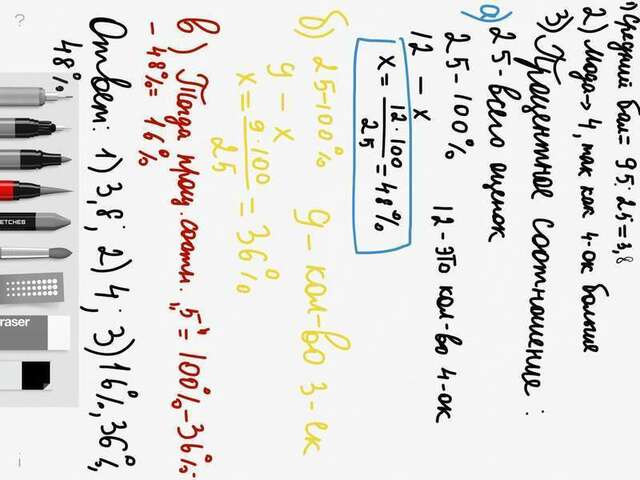 1) Средний бал = 95 : 25 = 3,8
2) Мода → 4, так как 4-ок больше
3) Процентное соотношение :
а) 25 - всего оценок
25 - 100% 12 - это кол-во 4-ок
12 - х
х = 12 · 100 / 25 = 48%
б) 25 - 100% 9 - кол-во 3-ек
9 - х
х = 9 · 100 / 25 = 36%
в) Тогда проц. соотн. „5" = 100% - 36% -
- 48% = 16%
Ответ: 1) 3,8 ; 2) 4 ; 3) 16%, 36%,
48%
ETCHES
raser
?
i